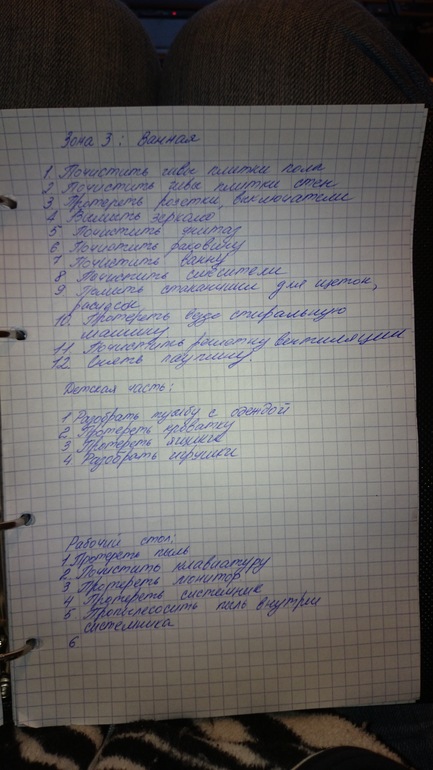 Зона 3: Ванная
1. Почистить швы плитки пола
2. Почистить швы плитки стен
3 Протереть розетки, выключатели
4 Вымыть зеркало
5 Почистить унитаз
6. Почистить раковину
7 Почистить ванну
8 Почистить смесители
9 Помыть стаканчики для щеток,
расчесок
10. Протереть
стиральную
машину
11. Почистить решотку вентиляции
12. Снять паутину.
Детская часть:
1 Разобрать тумбу с одеждой
2 Протереть кроватку
3 Протереть ящики
4. Разобрать игрушки
Рабочий стол.
1 Протереть пыль
2 Почистить клавиатуру
3 Протереть монитор
4 Протереть системник
5 Пропылесосить пыль внутри
системника
6